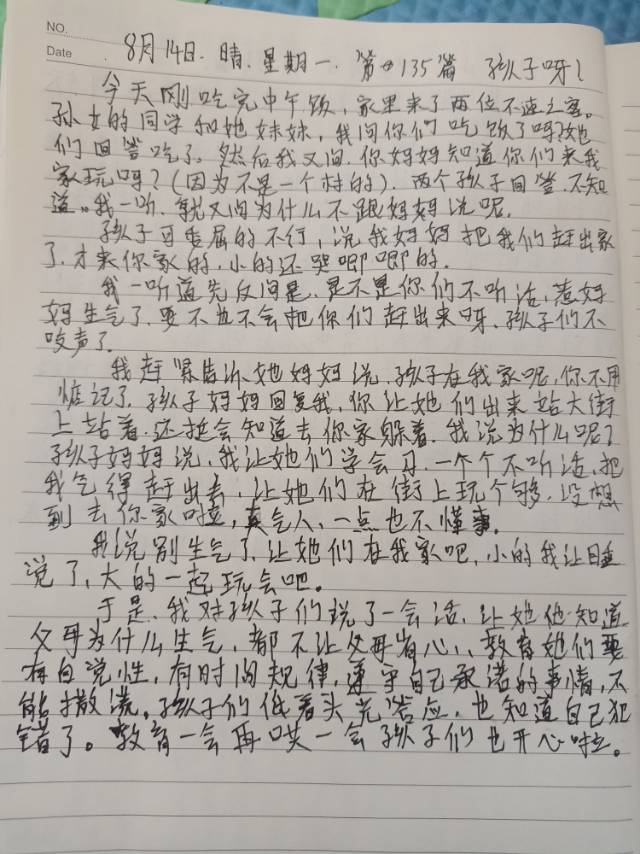 NO.
Date
8月14日.晴.星期一.第135篇 孩子呀!
今天刚吃完中午饭,家里来了两位不速之客。
孙女的同学和她妹妹,我问你们吃饭了吗?她
们回答吃了。然后我又问.你妈妈知道你们来我
家玩吗?(因为不是一个村的).两个孩子回答.不知
道。我一听.就又问为什么不跟妈妈说呢.
孩子可委屈的不行,说我妈妈把我们赶出家
了.才来你家的.小的还哭唧唧的.
我一听道先反问是.是不是你们不听话,惹妈
妈生气了.要不也不会把你们赶出来呀.孩子们不
吱声了.
我赶紧告诉她妈妈说.孩子在我家呢,你不用
惦记了.孩子妈妈回复我,你让她们出来站大街
上站着.还挺会知道去你家躲着.我说为什么呢?
孩子妈妈说,我让她们学会习.一个个不听话.把
我气得赶出去,让她们在街上玩个够.没想
到去你家了,真气人、一点也不懂事.
我说别生气了.让她们在我家吧,小的我让睡
觉了,大的一起玩会吧。
于是.我对孩子们说了一会话,让她他知道
父母为什么生气,都不让父母省心,教育她们要
有自觉性,有时间规律,遵守自己承诺的事情,不
能撒谎。孩子们低着头光答应,也知道自己犯
错了。教育一会再哄一会孩子们也开心啦。